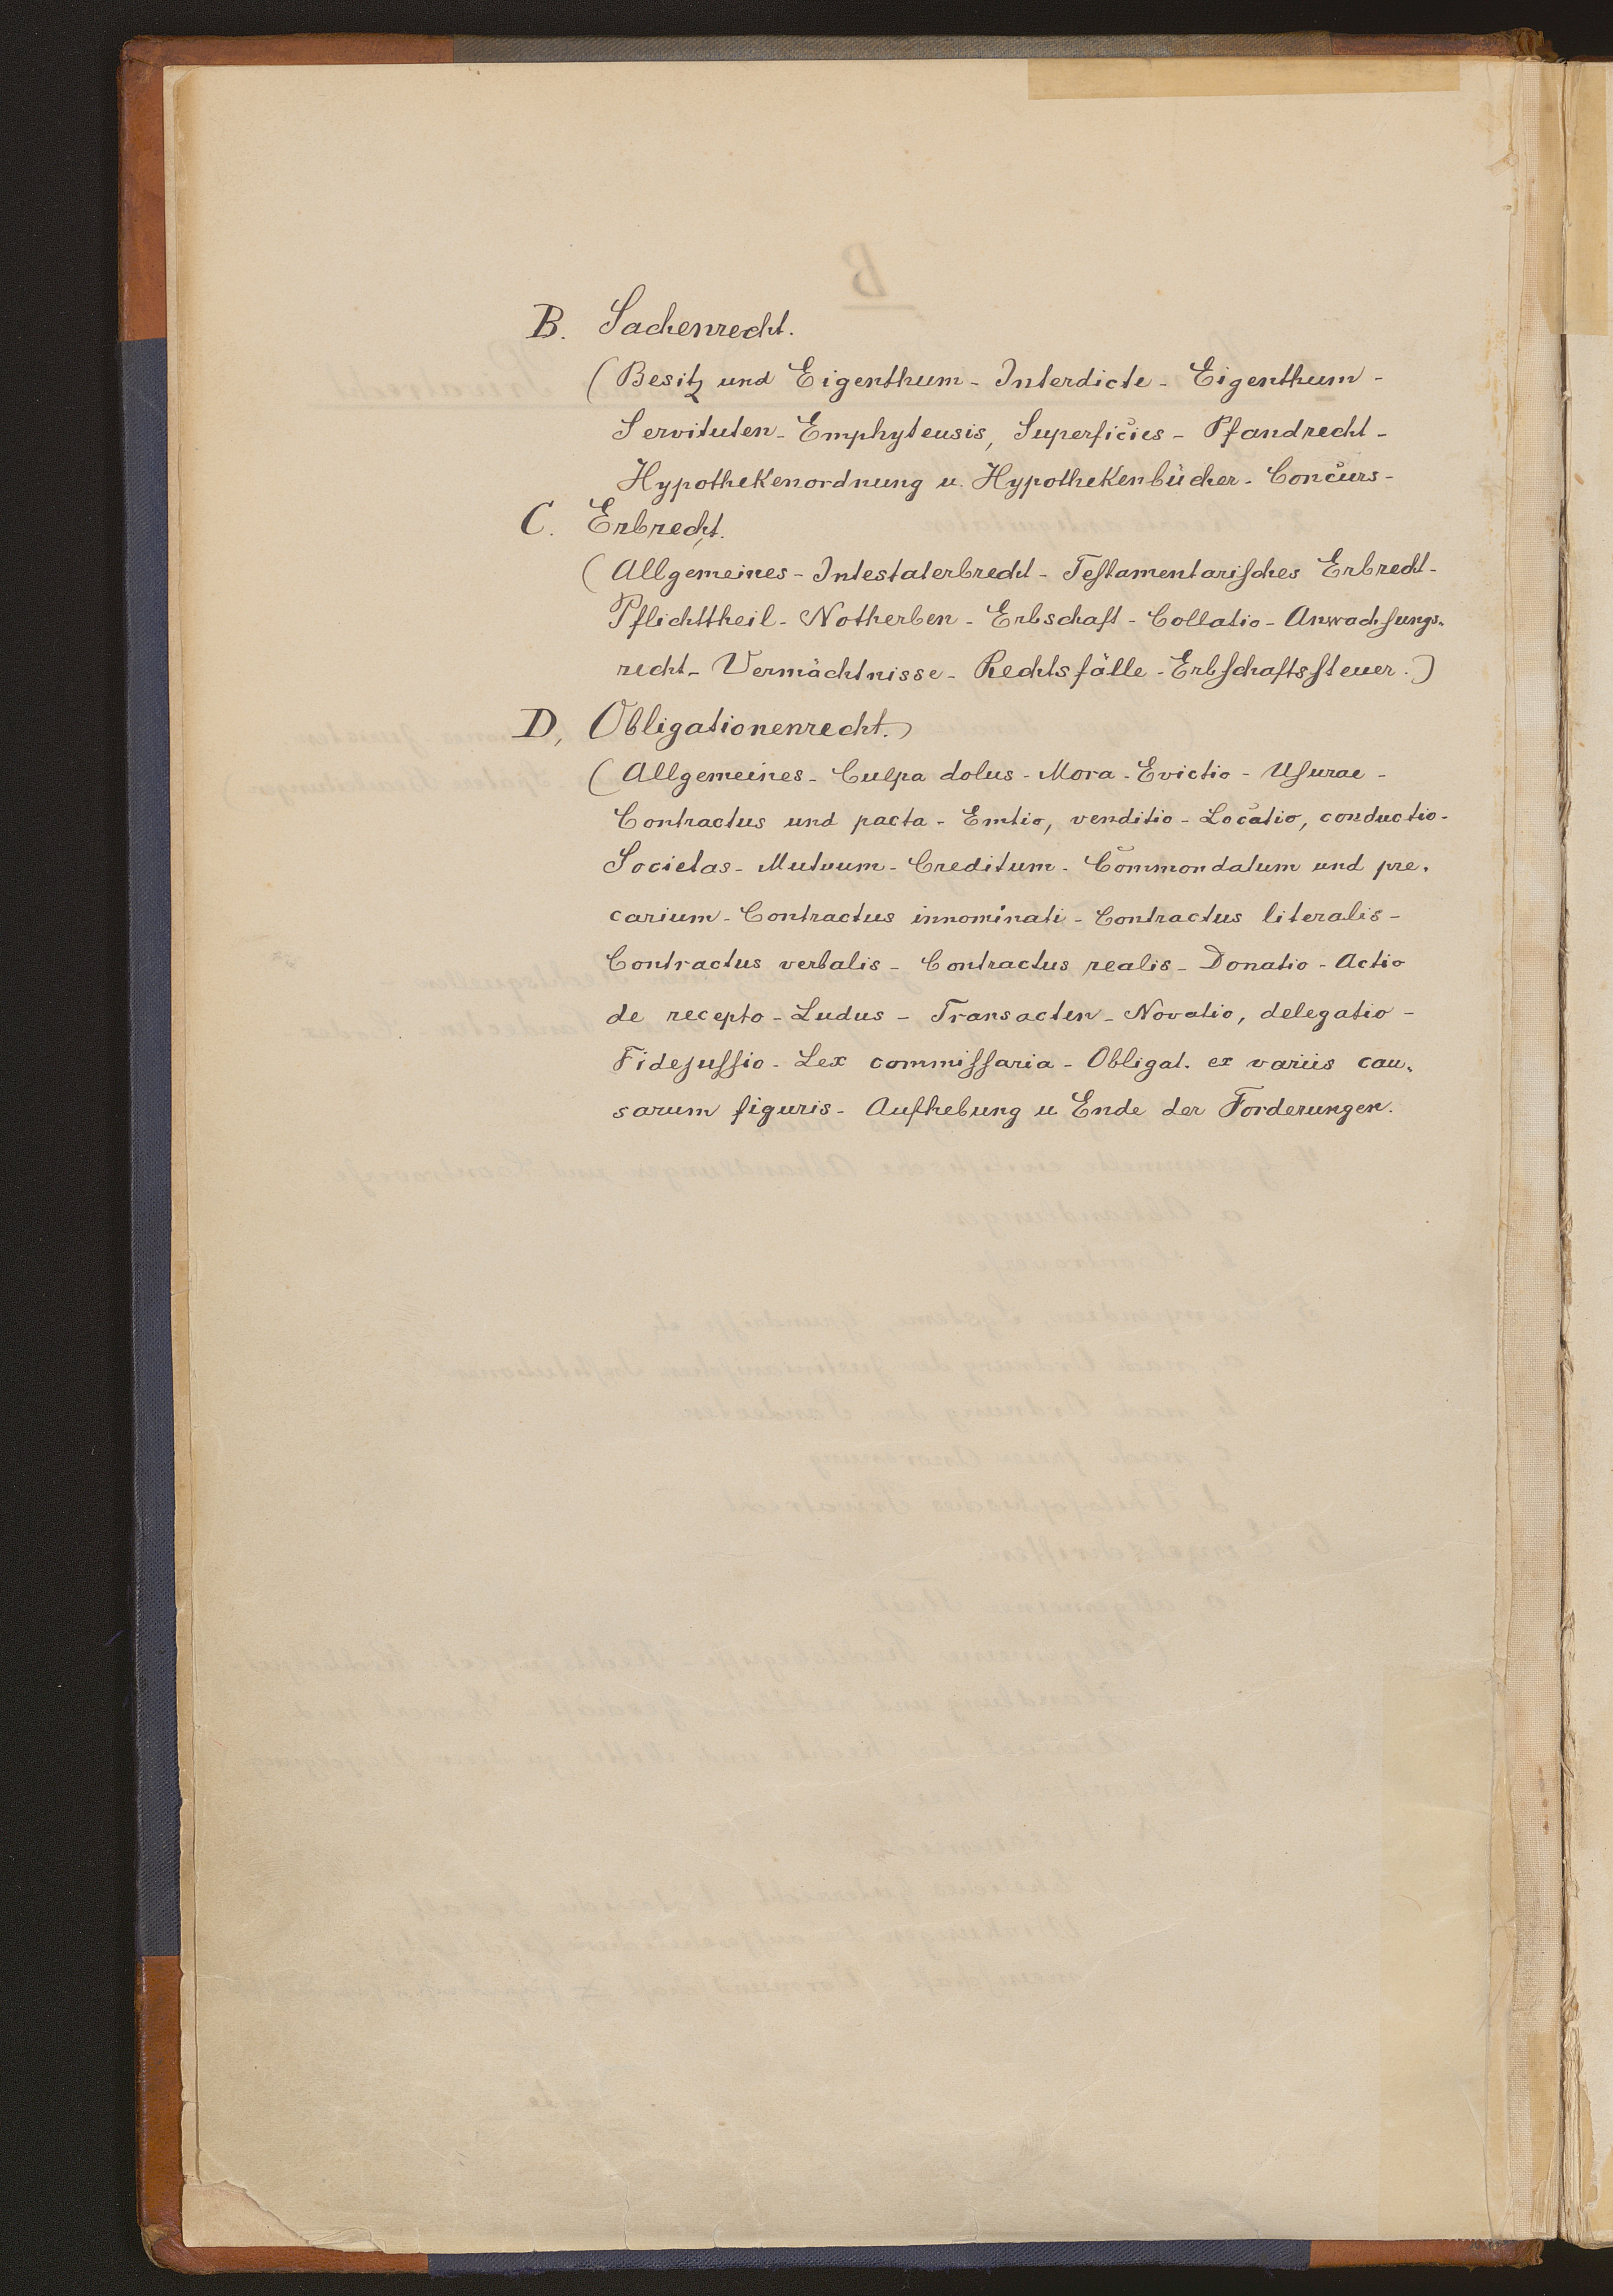 B. Sachenrecht.
(Besitz und Eigenthum - Interdicte - Eigenthum -
Servituten - Emphyteusis, Superficies - Pfandrecht -
Hypothekenordnung u. Hypothekenbücher - Concurs -
C. Erbrecht.
(Allgemeines - Intestaterbrecht - Testamentarisches Erbrecht -
Pflichttheil - Notherben - Erbschaft - Collatio - Anwachsungs-
recht - Vermächtnisse - Rechtsfälle - Erbschaftssteuer.)
D, Obligationenrecht.)
(Allgemeines - Culpa dolus - Mora - Evictio - Usurae -
Contractus und pacta - Emtio, venditio - Locatio, conductio -
Societas - Mutuum - Creditum - Commondatum und pre-
carium - Contractus innominati - Contractus literalis -
Contractus verbalis - Contractus realis - Donatio - Actio
de recepto - Ludus - Transacten - Novatio, delegatio -
Fidejussio - Lex commissaria - Obligat. ex variis cau-
sarum figuris - Aufhebung u Ende der Forderungen.